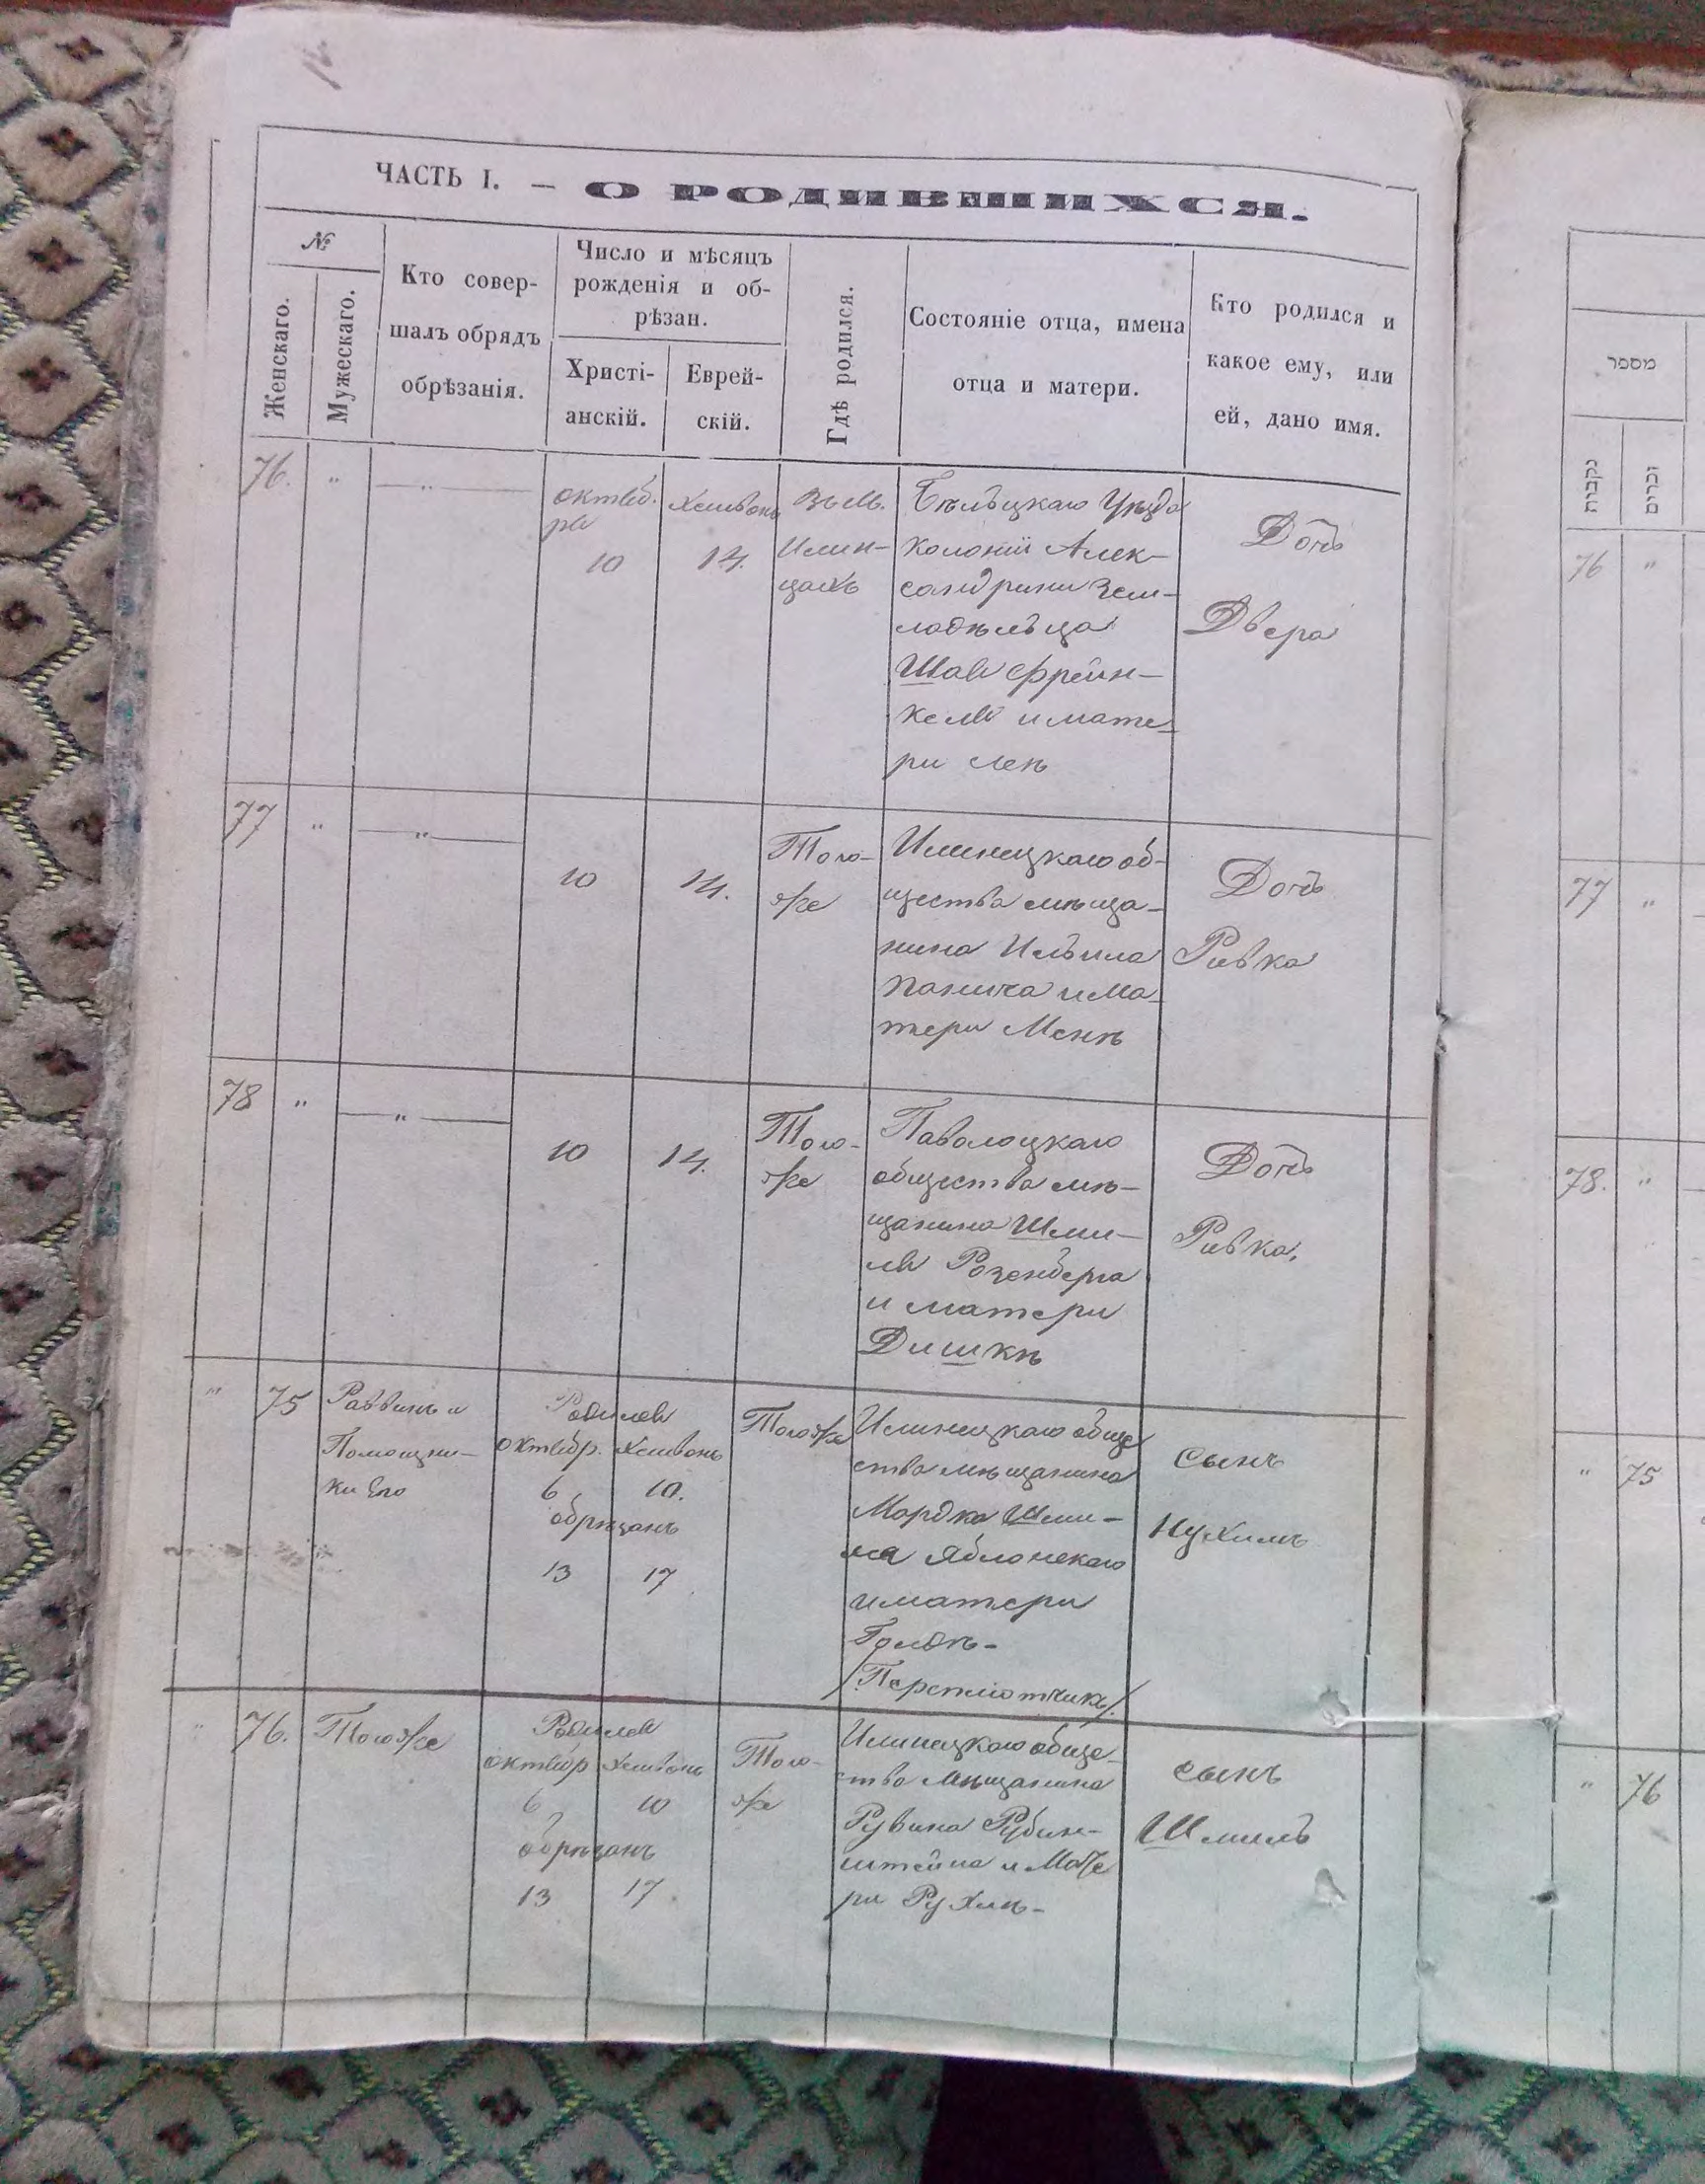 ЧАСТЬ I. — О РОДИВШИХСЯ.
№
Женскаго.
Мужескаго.
Кто совер-
шалъ обрядъ
обрѣзанія.
Число и мѣсяцъ
рожденія и об-
рѣзан.
Христі-
анскій.
Еврей-
скій.
Гдѣ родился.
Состояніе отца, имена
отца и матери.
Кто родился и
какое ему, или
ей, дано имя.
76. " — " —
октяб.
ря
10
Хешвонъ
14.
Въ М.
Илин-
цахъ
Бѣльцкаго Уѣзда
Колоніи Алек-
сандрини Зем-
ладѣльца
Шая Френ-
келя и мате-
ри Леѣ
Дочь
Двера
77 " — " —
10
14.
Того-
же
Илинецкаго об-
щества мѣща-
нина Ильила
Панича и Ма-
тери Менѣ
Дочь
Ривка
78 " — " —
10
14.
Того-
же
Паволоцкаго
общества мѣ-
щанина Шми-
ля Розенберга
и матери
Дишкѣ
Дочь
Ривка.
" 75
Раввинъ и
Помощни-
ки Его
Родился
октябр. Хешвонъ
6 10.
обрѣзанъ
13 17
Тогоже
Илинецкаго обще
ства мѣщанина
Мордка Шми-
ля Яблонскаго
и матери
Голдѣ-
сынъ
Нухимъ
" 76. Тогоже
Родился
октябр Хешвонъ
6 10
обрѣзанъ
13 17.
Того-
же
Илинецкаго обще-
ства Мѣщанина
Рувина Рубин-
штейна и Мате
ри Рухлѣ-
сынъ
Шмиль
מספר
נקבות
זכרים
76 "
77 "
78. "
" 75
" 76